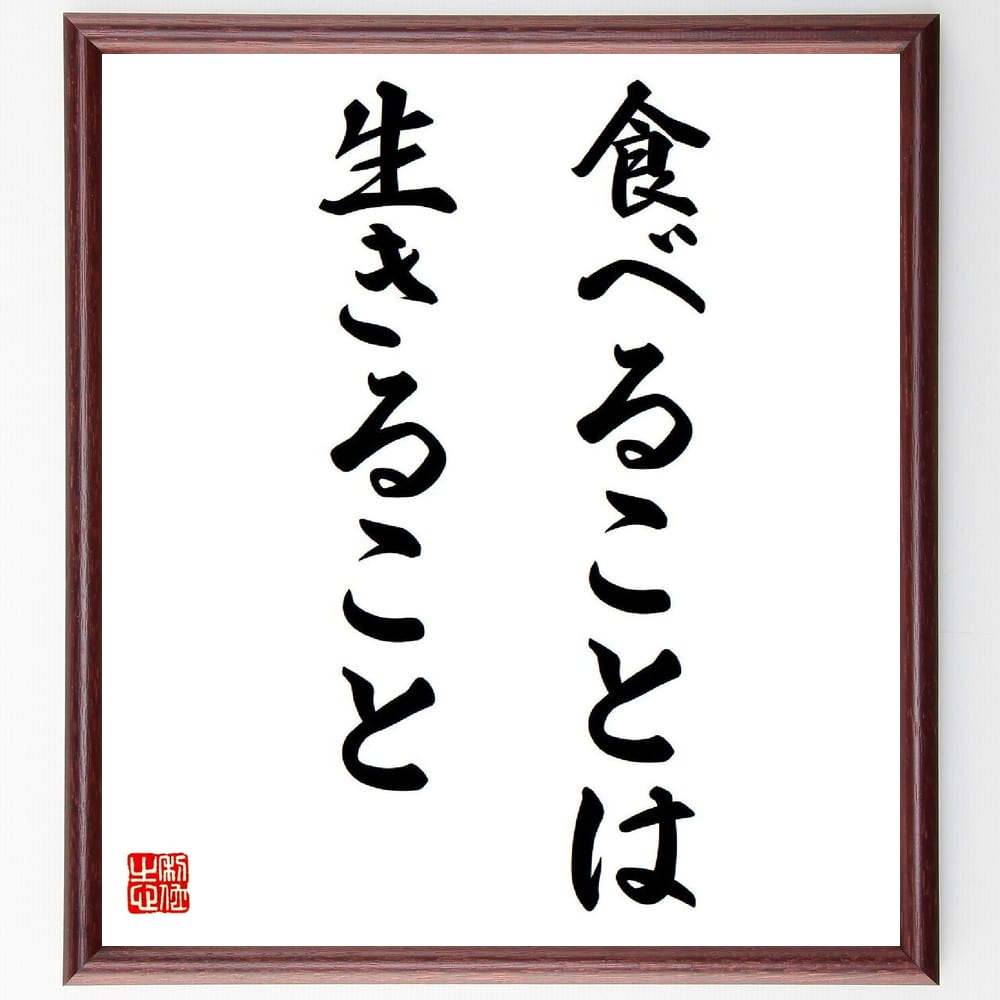 食べることは
生きること